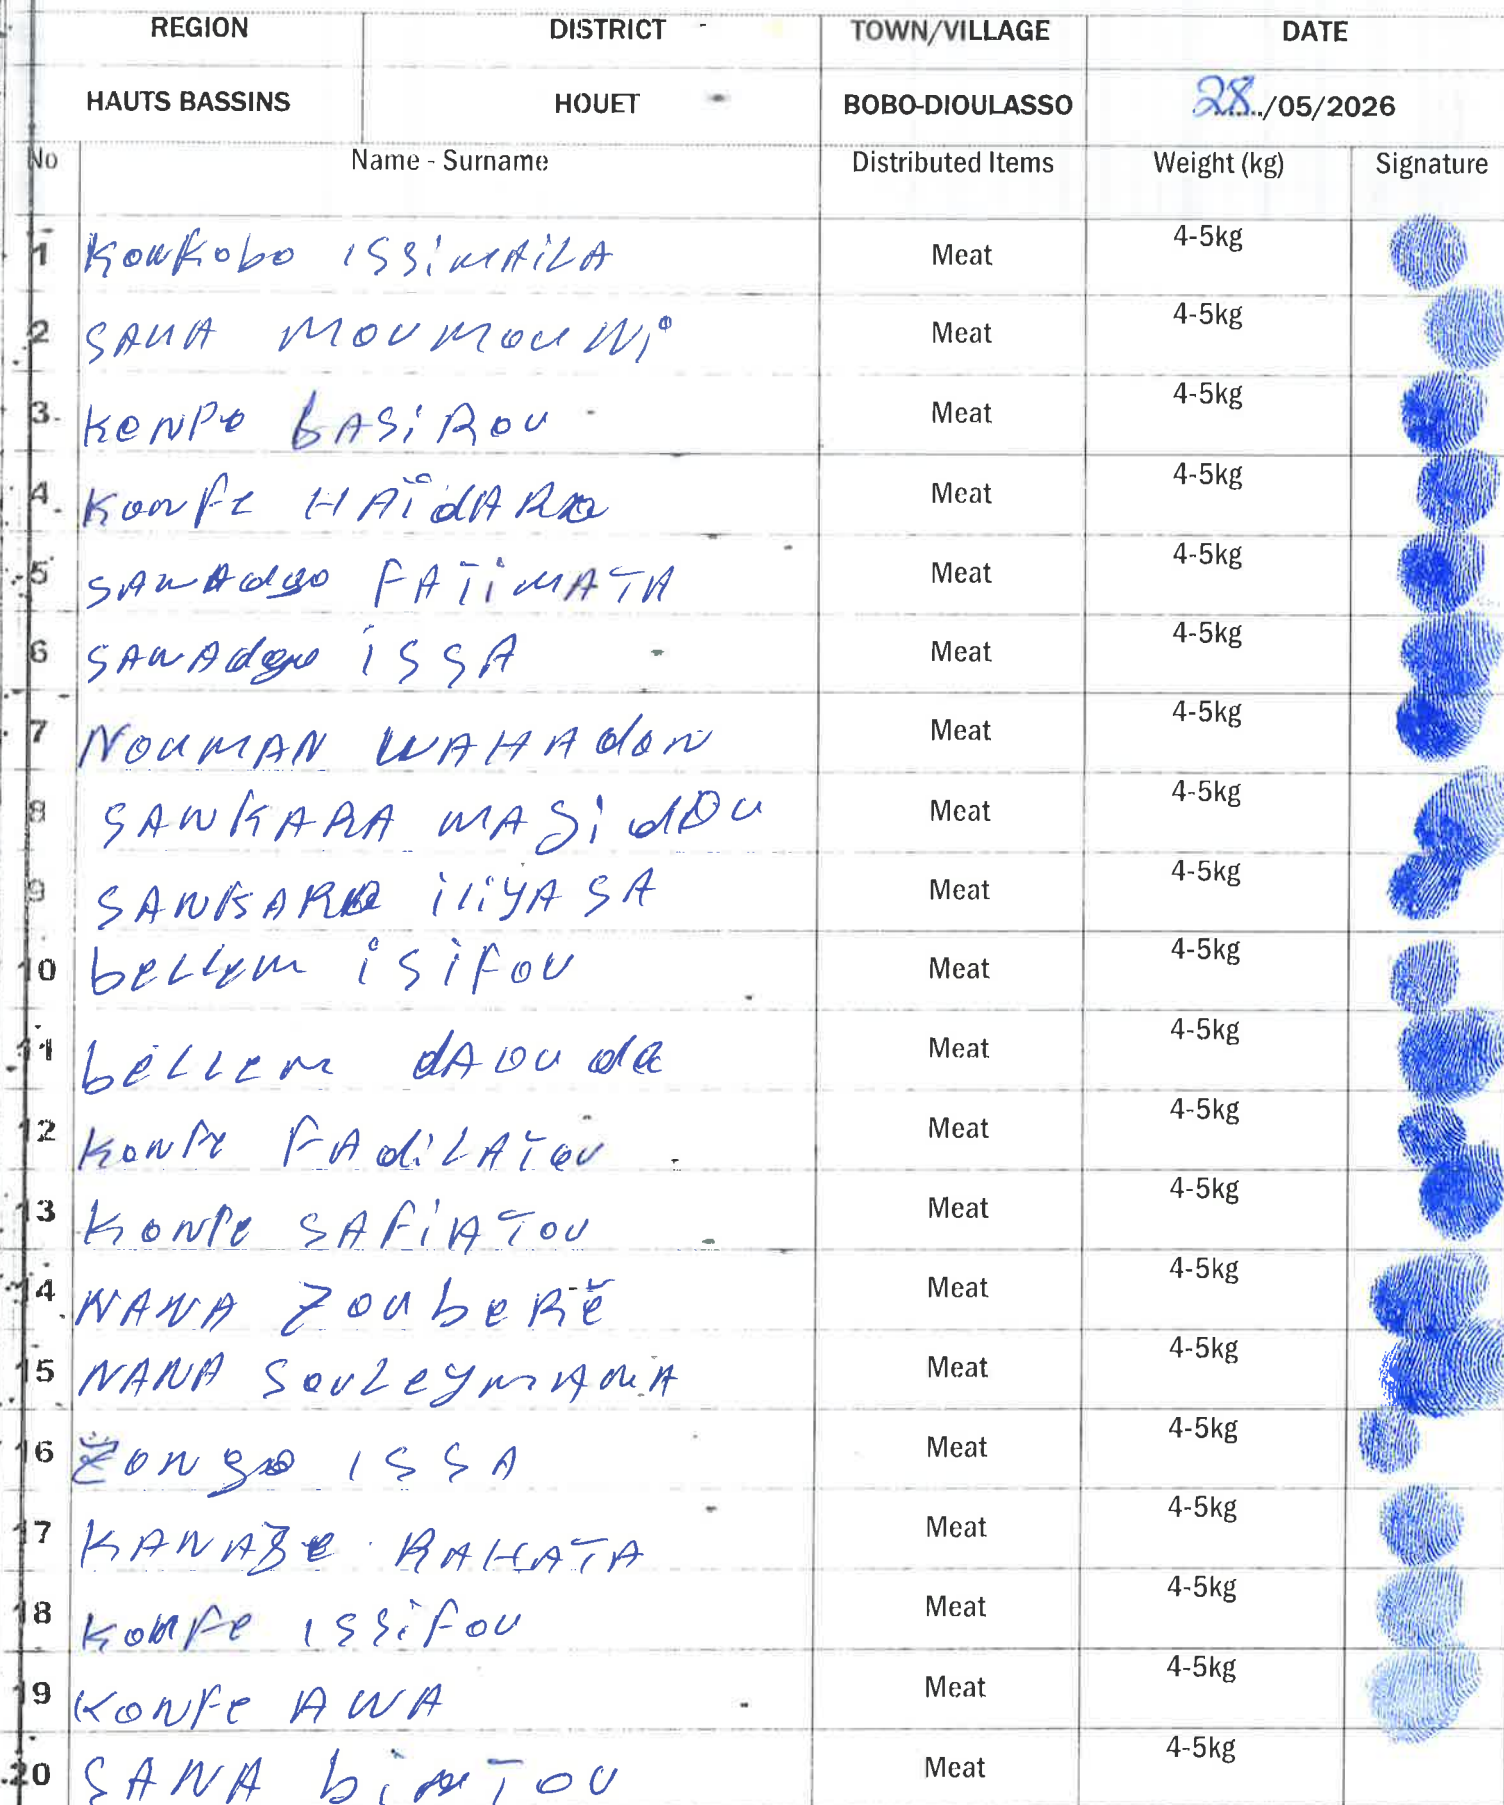 REGION DISTRICT TOWN/VILLAGE DATE
HAUTS BASSINS HOUET BOBO-DIOULASSO 28/05/2026
No Name - Surname Distributed Items Weight (kg) Signature
1 KonKobo ISSiMAiLA Meat 4-5kg
2 SANA MOUMOUNi Meat 4-5kg
3 KeNPo bASiRou Meat 4-5kg
4 KonFe HAïdARA Meat 4-5kg
5 SAWAdgo FATiMATA Meat 4-5kg
6 SAWAdgo iSSA Meat 4-5kg
7 NOUMAN WAHAdon Meat 4-5kg
8 SANKARA MASidOu Meat 4-5kg
9 SANKARA iliYASA Meat 4-5kg
10 beLLem iSiFou Meat 4-5kg
11 béLLem dAouda Meat 4-5kg
12 KonFe FAdiLATou Meat 4-5kg
13 KonFe SAFiATou Meat 4-5kg
14 NANA ZoubeRé Meat 4-5kg
15 NANA SouLeymANA Meat 4-5kg
16 Zongo ISSA Meat 4-5kg
17 KANAZe RAHATA Meat 4-5kg
18 KonFe ISSiFou Meat 4-5kg
19 KonFe AWA Meat 4-5kg
20 SANA binTou Meat 4-5kg